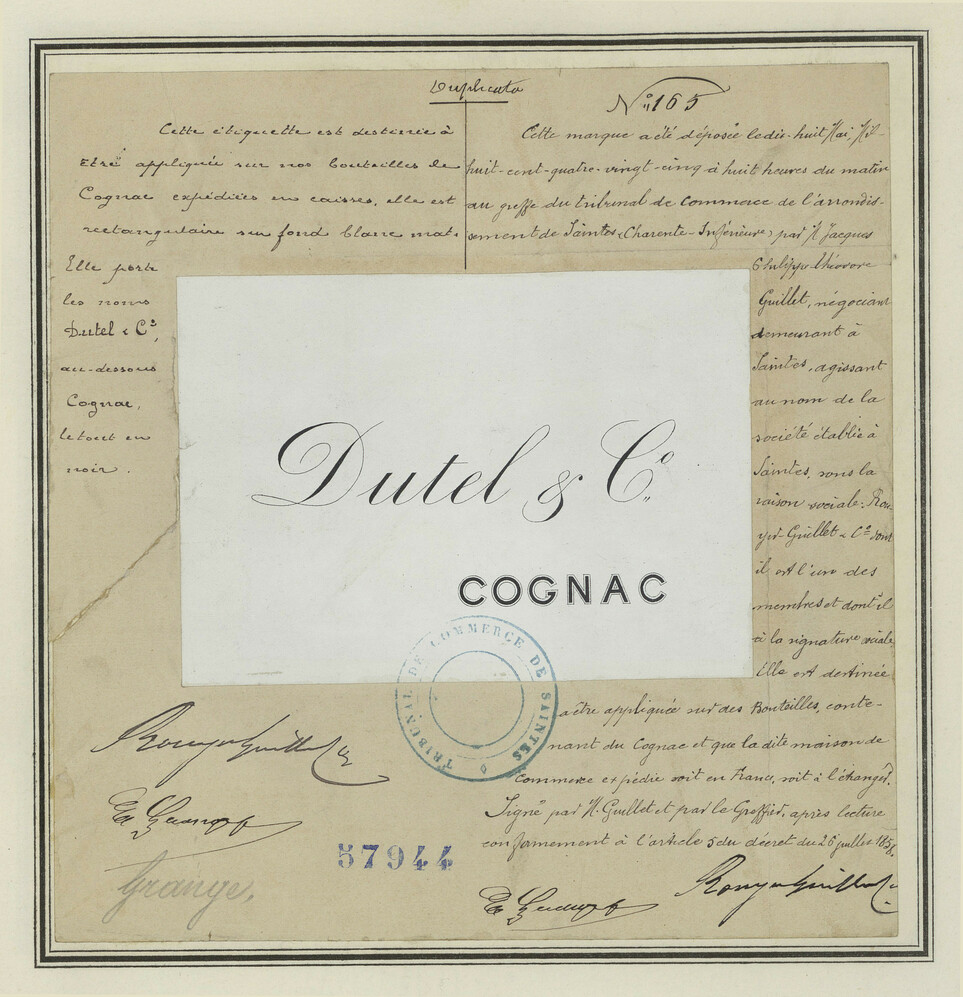 Duplicata
Cette étiquette est destinée à
être appliquée sur nos bouteilles de
Cognac expédiées en caisses, elle est
rectangulaire sur fond blanc mat.
Elle porte
les noms
Dutel & Cº,
au-dessous
Cognac,
le tout en
noir.
Nº 165
Cette marque a été déposée le dix-huit Mai, Mil-
huit-cent-quatre-vingt-cinq à huit heures du matin
au greffe du tribunal de commerce de l'arrondis-
sement de Saintes (Charente-Inférieure) par M Jacques
Philippe Théodore
Guillet, négociant
demeurant à
Saintes, agissant
au nom de la
société établie à
Saintes, sous la
raison sociale: Rou-
yer-Guillet & Cº dont
il est l'un des
membres et dont il
a la signature sociale
Elle est destinée
à être appliquée sur des Bouteilles, conte-
nant du Cognac et que la dite maison de
commerce expédie soit en France, soit à l'étranger.
Signé par M. Guillet et par le Greffier, après lecture
conformement à l'article 5 du décret du 26 juillet 1858.
Dutel & Cº
COGNAC
TRIBUNAL DE COMMERCE DE SAINTES
Rouyer Guillet & Cº
57944
Grange.
Rouyer Guillet & Cº